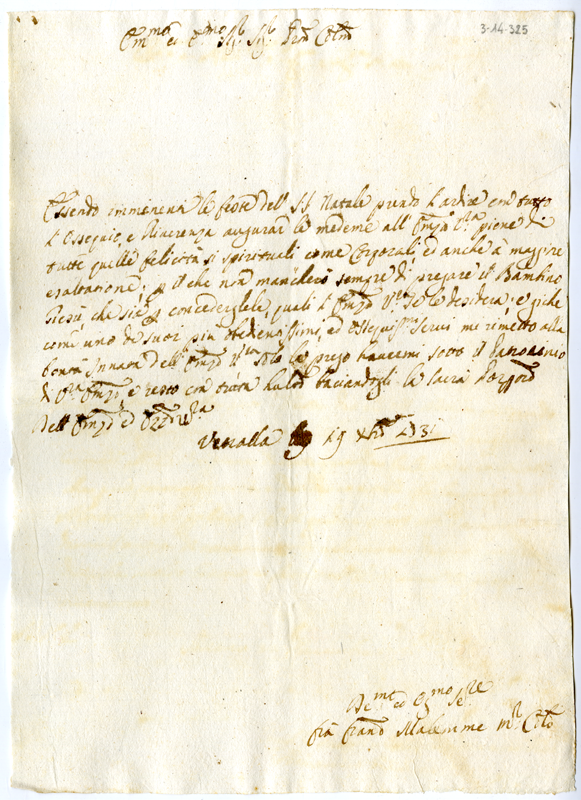 3-14-325
Em.mo ed R.mo Sig.r Sig.r Pron Col.mo
Essendo imminenti le feste dell' SS. Natale prendo l'ardire con tutto
l'ossequio, e riverenza augurar le medeme all' Em.za V.ra piene di
tutte quelle felicità si spirituali come corporali, ed anche à maggior
esaltazione; p il che non mancherò sempre di pregare il Bambino
Giesù che sia p concederglele, quali l' Em.za V.ra se le desidera; e giche
come uno de suoi più obedientissimi, ed ossequiss.mi servi mi rimetto alla
bontà innata dell' Em.za V.ra solo la prego havermi sotto il patrocinio
di V.ra Em.za, e resto con tutta baciandogli la sacra
Dell' Em.za ed
19 Xbre 1731
ed se.re
fra Malemme